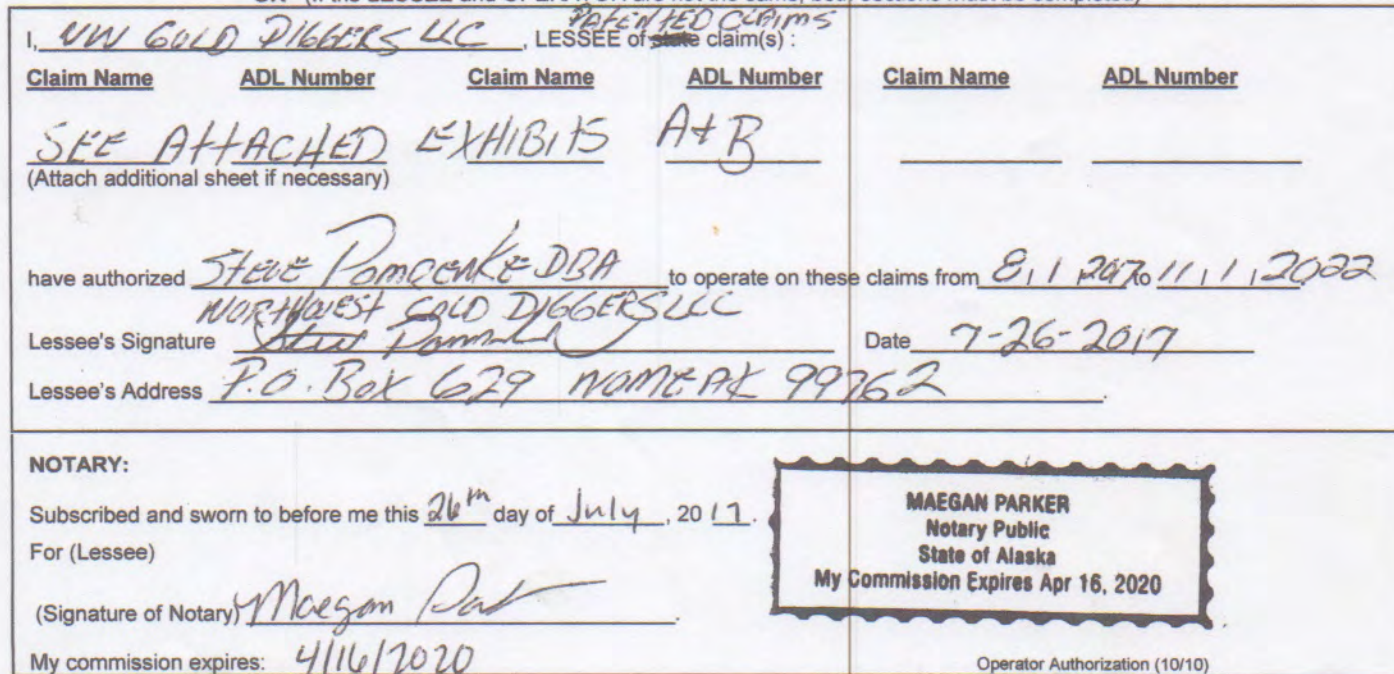 PATENTED CLAIMS
I, NW GOLD DIGGERS LLC , LESSEE of state claim(s) :
Claim Name ADL Number Claim Name ADL Number Claim Name ADL Number
SEE AttACHED EXHIBITS A & B
(Attach additional sheet if necessary)
have authorized STEVE POMRENKE DBA to operate on these claims from 8, 1, 2017 to 11, 1, 2022
NORTHWEST GOLD DIGGERS LLC
Lessee's Signature Date 7-26-2017
Lessee's Address P.O. Box 629 NOME AK 99762 .
NOTARY:
Subscribed and sworn to before me this 26th day of July , 20 17 .
For (Lessee)
(Signature of Notary) Maegan .
My commission expires: 4/16/2020
MAEGAN PARKER
Notary Public
State of Alaska
My Commission Expires Apr 16, 2020
Operator Authorization (10/10)